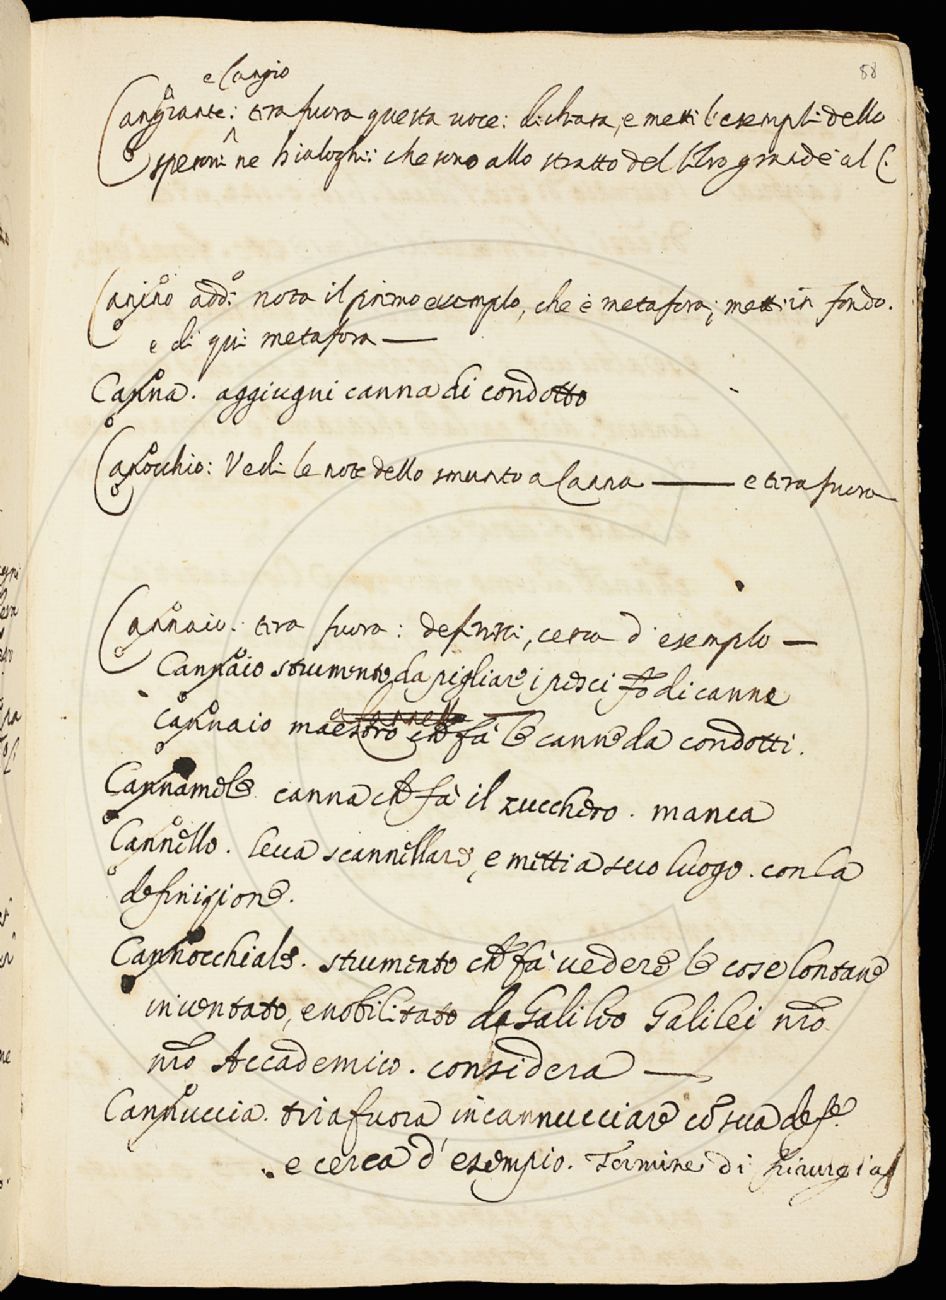 88
e Cangio
Cangiante: tira fuora questa voce: dichiara, e metti l'esempli dello
speroni ne Dialoghi: che sono allo stratto del libro grande al C.
Canino add: nota il primo esemplo, che è metafora; metti in fondo.
e di qui metafora —
Canna. aggiugni canna di condotto
Canocchio: Vedi le note dello smunto a Canna — e tira fuora
Cannaio. tira fuora: definisci, cerca d'esemplo —
Cannaio strumento da pigliare i pesci fto di canne
Cannaio maestro che fà le canne da condotti.
Cannamele. canna che fà il zucchero. manca
Cannello. leva scannellare, e metti a suo luogo. con la
definizione.
Cannocchiale. strumento che fà vedere le cose lontane
inventato, e nobilitato da Galileo Galilei nro
nro Accademico. considera —
Cannuccia. tira fuora incannucciare co sua def.e
e cerca d'esempio. Termine di Chirurgia